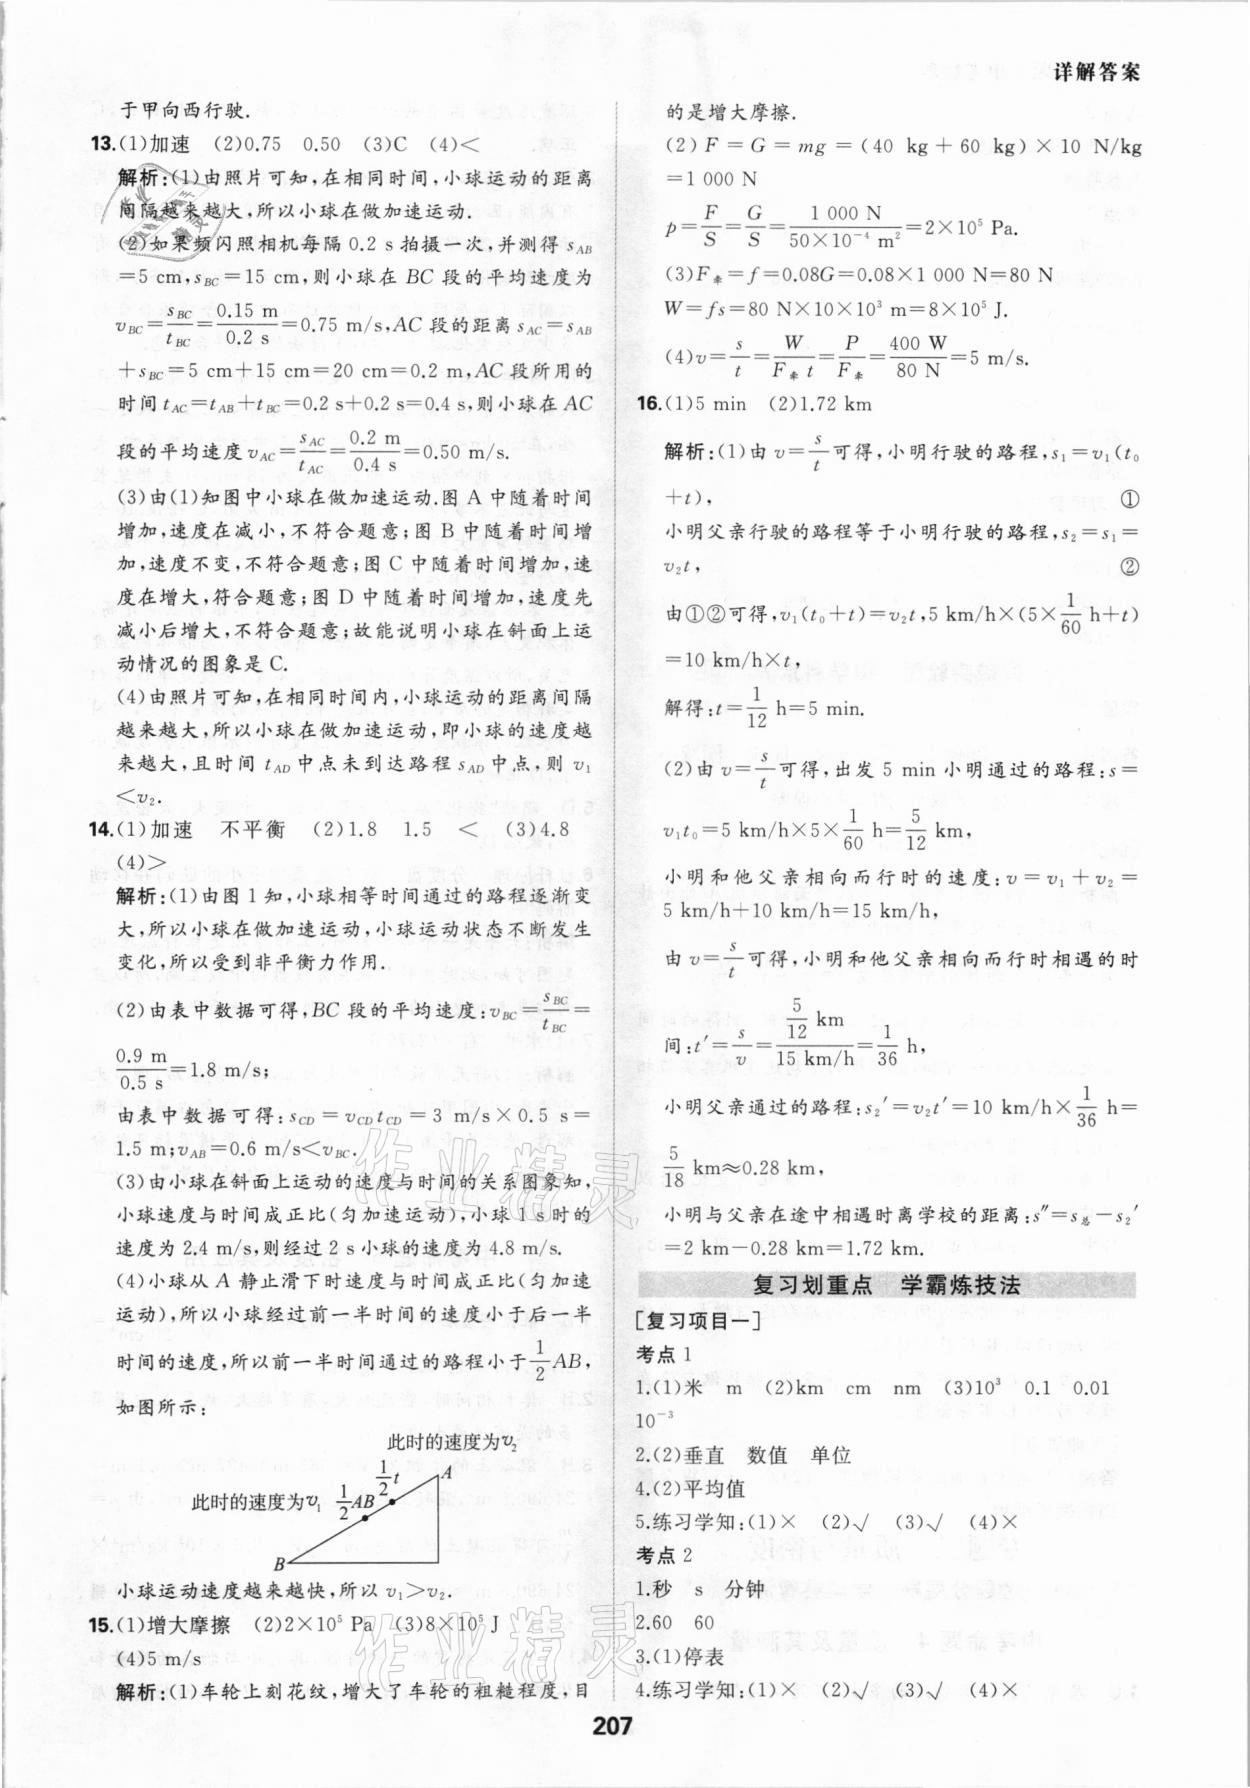 详解答案
于甲向西行驶.
13.(1)加速 (2)0.75 0.50 (3)C (4)<
解析:(1)由照片可知,在相同时间,小球运动的距离
间隔越来越大,所以小球在做加速运动.
(2)如果频闪照相机每隔 0.2 s 拍摄一次,并测得 s_AB
=5 cm,s_BC=15 cm,则小球在 BC 段的平均速度为
v_BC=s_BC/t_BC=0.15 m/0.2 s=0.75 m/s,AC 段的距离 s_AC=s_AB
+s_BC=5 cm+15 cm=20 cm=0.2 m,AC 段所用的
时间 t_AC=t_AB+t_BC=0.2 s+0.2 s=0.4 s,则小球在 AC
段的平均速度 v_AC=s_AC/t_AC=0.2 m/0.4 s=0.50 m/s.
(3)由(1)知图中小球在做加速运动.图 A 中随着时间
增加,速度在减小,不符合题意;图 B 中随着时间增
加,速度不变,不符合题意;图 C 中随着时间增加,速
度在增大,符合题意;图 D 中随着时间增加,速度先
减小后增大,不符合题意;故能说明小球在斜面上运
动情况的图象是 C.
(4)由照片可知,在相同时间内,小球运动的距离间隔
越来越大,所以小球在做加速运动,即小球的速度越
来越大,且时间 t_AD 中点未到达路程 s_AD 中点,则 v₁
<v₂.
14.(1)加速 不平衡 (2)1.8 1.5 < (3)4.8
(4)>
解析:(1)由图 1 知,小球相等时间通过的路程逐渐变
大,所以小球在做加速运动,小球运动状态不断发生
变化,所以受到非平衡力作用.
(2)由表中数据可得,BC 段的平均速度:v_BC=s_BC/t_BC=
0.9 m/0.5 s=1.8 m/s;
由表中数据可得:s_CD=v_CD t_CD=3 m/s×0.5 s=
1.5 m;v_AB=0.6 m/s<v_BC.
(3)由小球在斜面上运动的速度与时间的关系图象知,
小球速度与时间成正比(匀加速运动),小球 1 s 时的
速度为 2.4 m/s,则经过 2 s 小球的速度为 4.8 m/s.
(4)小球从 A 静止滑下时速度与时间成正比(匀加速
运动),所以小球经过前一半时间的速度小于后一半
时间的速度,所以前一半时间通过的路程小于1/2AB,
如图所示:
此时的速度为v₂
1/2t A
此时的速度为v₁ 1/2AB
B
小球运动速度越来越快,所以 v₁>v₂.
15.(1)增大摩擦 (2)2×10⁵ Pa (3)8×10⁵ J
(4)5 m/s
解析:(1)车轮上刻花纹,增大了车轮的粗糙程度,目
的是增大摩擦.
(2)F=G=mg=(40 kg+60 kg)×10 N/kg
=1 000 N
p=F/S=G/S=1 000 N/50×10⁻⁴ m²=2×10⁵ Pa.
(3)F牵=f=0.08G=0.08×1 000 N=80 N
W=fs=80 N×10×10³ m=8×10⁵ J.
(4)v=s/t=W/F牵 t=P/F牵=400 W/80 N=5 m/s.
16.(1)5 min (2)1.72 km
解析:(1)由 v=s/t可得,小明行驶的路程,s₁=v₁(t₀
+t), ①
小明父亲行驶的路程等于小明行驶的路程,s₂=s₁=
v₂t, ②
由①②可得,v₁(t₀+t)=v₂t,5 km/h×(5×1/60 h+t)
=10 km/h×t,
解得:t=1/12 h=5 min.
(2)由 v=s/t可得,出发 5 min 小明通过的路程:s=
v₁t₀=5 km/h×5×1/60 h=5/12 km,
小明和他父亲相向而行时的速度:v=v₁+v₂=
5 km/h+10 km/h=15 km/h,
由 v=s/t可得,小明和他父亲相向而行时相遇的时
间:t′=s/v=5/12 km/15 km/h=1/36 h,
小明父亲通过的路程:s₂′=v₂t′=10 km/h×1/36 h=
5/18 km≈0.28 km,
小明与父亲在途中相遇时离学校的距离:s″=s总−s₂′
=2 km−0.28 km=1.72 km.
复习划重点 学霸炼技法
[复习项目一]
考点 1
1.(1)米 m (2)km cm nm (3)10³ 0.1 0.01
10⁻³
2.(2)垂直 数值 单位
4.(2)平均值
5.练习学知:(1)× (2)√ (3)√ (4)×
考点 2
1.秒 s 分钟
2.60 60
3.(1)停表
4.练习学知:(1)× (2)√ (3)√ (4)×
207
作业精灵
作业精灵